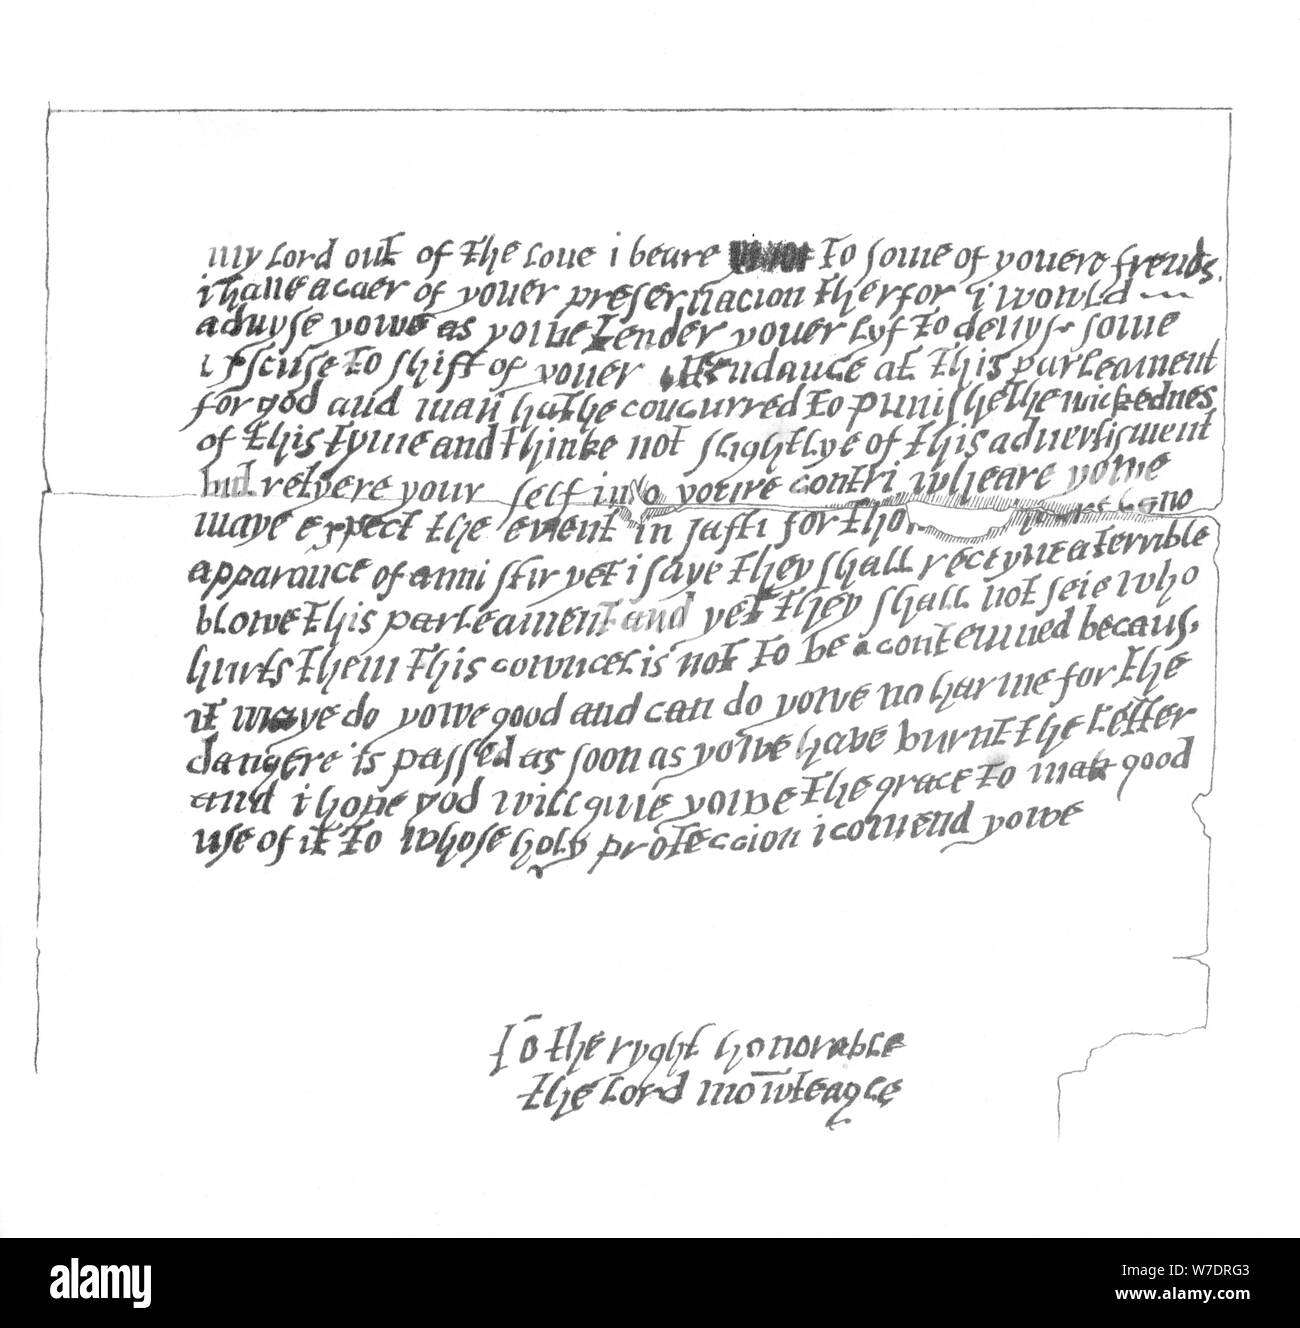 my lord out of the love i beare to some of youere frends
i have a caer of youer preservacion therfor i would
advyse yowe as yowe tender youer lyf to devys some
exscuse to shift of youer attendance at this parleament
for god and man hathe concurred to punishe the wickednes
of this tyme and thinke not slightlye of this advertisment
but retyere youre self into youre contri wheare yowe
maye expect the event in safti for tho no
apparance of anni stir yet i saye they shall receyve a terrible
blowe this parleament and yet they shall not seie who
hurts them this cowncel is not to be acontemned becaus
it maye do yowe good and can do yowe no harme for the
dangere is passed as soon as yowe have burnt the letter
and i hope god will give yowe the grace to mak good
use of it to whose holy proteccion i comend yowe
To the ryght honorable
the lord mowteagle
alamy
W7DRG3
www.alamy.com